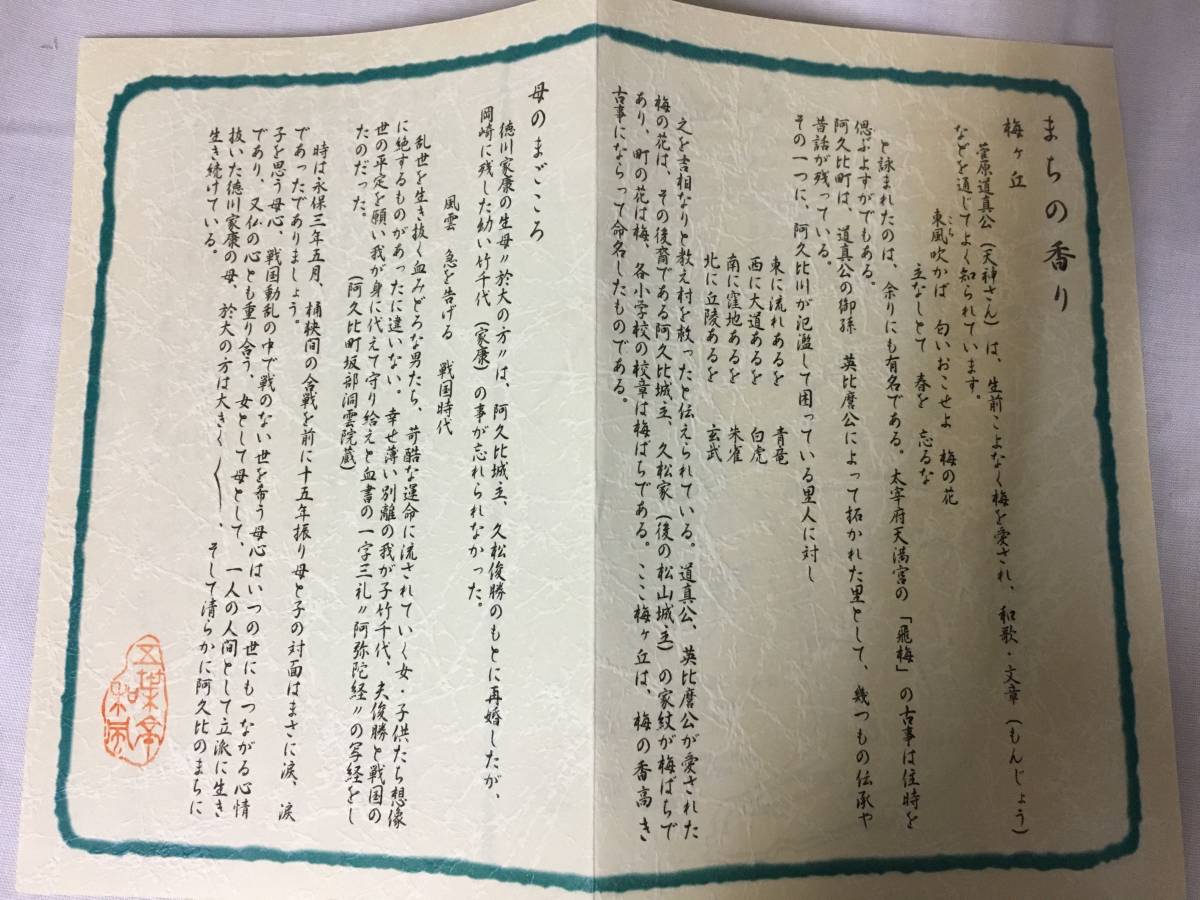 まちの香り
梅ヶ丘
菅原道真公（天神さん）は、生前こよなく梅を愛され、和歌・文章（もんじょう）
などを通じてよく知られています。
東風吹かば　匂いおこせよ　梅の花
こち
主なしとて　春を　忘るな
と詠まれたのは、余りにも有名である。太宰府天満宮の「飛梅」の古事は往時を
偲ぶよすがでもある。
阿久比町は、道真公の御孫　英比麿公によって拓かれた里として、幾つもの伝承や
昔話が残っている。
その一つに、阿久比川が氾濫して困っている里人に対し
東に流れあるを　青竜
西に大道あるを　白虎
南に窪地あるを　朱雀
北に丘陵あるを　玄武
之を吉相なりと教え村を救ったと伝えられている。道真公、英比麿公が愛された
梅の花は、その後裔である阿久比城主、久松家（後の松山城主）の家紋が梅ばちで
あり、町の花は梅、各小学校の校章は梅ばちである。ここ梅ヶ丘は、梅の香高き
古事にならって命名したものである。
母のまごころ
徳川家康の生母〃於大の方〃は、阿久比城主、久松俊勝のもとに再婚したが、
岡崎に残した幼い竹千代（家康）の事が忘れられなかった。
風雲　急を告げる　戦国時代
乱世を生き抜く血みどろな男たち、苛酷な運命に流されていく女・子供たち想像
に絶するものがあったに違いない。幸せ薄い別離の我が子竹千代、夫俊勝と戦国の
世の平定を願い我が身に代えて守り給えと血書の一字三礼〃阿弥陀経〃の写経をし
たのだった。
（阿久比町坂部洞雲院蔵）
時は永保三年五月、桶狭間の合戦を前に十五年振り母と子の対面はまさに涙、涙
であったでありましょう。
子を思う母心、戦国動乱の中で戦のない世を希う母心はいつの世にもつながる心情
であり、又仏の心とも重り合う、女として母として、一人の人間として立派に生き
抜いた徳川家康の母、於大の方は大きく〳〵、そして清らかに阿久比のまちに
生き続けている。